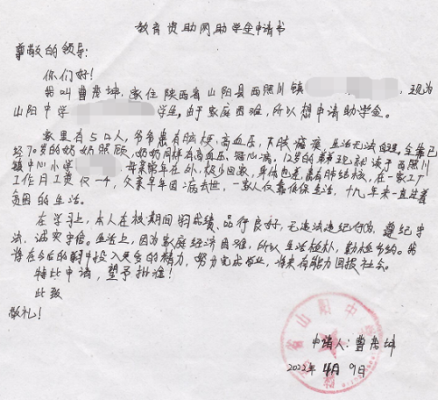 教育资助网助学金申请书
尊敬的领导:
你们好!
我叫曹彦坤,家住陕西省山阳县西照川镇 ,现为
山阳中学 学生。由于家庭困难,所以想申请助学金。
家里有5口人,爷爷患有脑梗,高血压,下肢瘫痪,生活无法自理,全靠已
经70岁的奶奶照顾,奶奶同样有高血压,冠心病。12岁的弟弟现就读于西照川
镇中心小学 ,母亲常年在外,极少回家,身体也患有肺结核,在一家工厂
工作月工资仅一千,父亲早年因病去世,一家人仅靠低保生活,十几年来一直过着
贫困的生活。
在学习上,本人在校期间的成绩、品行良好,无违法违纪行为,遵纪守
法,诚实守信。生活上,因为家庭经济困难,所以生活俭朴,勤俭节约。我
将在今后的学习中投入更多的精力,努力完成学业,将来有能力回报社会。
特此申请,望予批准!
此致
敬礼!
山阳中
申请人:曹彦坤
2022年4月9日